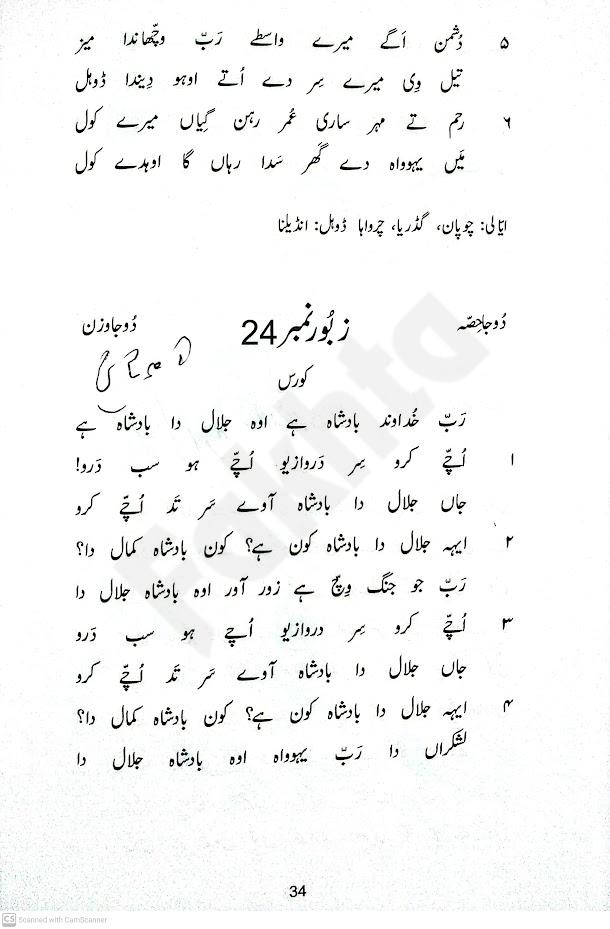 ۵ دُشمن اَگے میرے واسطے رَبّ وِچھاندا میز
تیل وِی میرے سِر دے اُتے اوہو دِیندا ڈوہل
۶ رحم تے مہر ساری عُمر رہن گیاں میرے کول
مَیں یہوواہ دے گھر سَدا رہاں گا اوہدے کول
ایالی: چوپان، گڈریا، چرواہا ڈوہل: انڈیلنا
دُوجا حِصّہ زبُور نمبر 24 دُوجا وزن
کورس
رَبّ خُداوند بادشاہ ہے اوہ جلال دا بادشاہ ہے
۱ اُچّے کرو سِر دَروازیو اُچّے ہو سب دَرو!
جاں جلال دا بادشاہ آوے سَر تَد اُچّے کرو
۲ ایہہ جلال دا بادشاہ کون ہے؟ کون بادشاہ کمال دا؟
رَبّ جو جنگ وِچّ ہے زور آور اوہ بادشاہ جلال دا
۳ اُچّے کرو سِر دروازیو اُچے ہو سب دَرو
جاں جلال دا بادشاہ آوے سَر تَد اُچّے کرو
۴ ایہہ جلال دا بادشاہ کون ہے؟ کون بادشاہ کمال دا؟
لشکراں دا رَبّ یہوواہ اوہ بادشاہ جلال دا
34
fakhta
CS Scanned with CamScanner